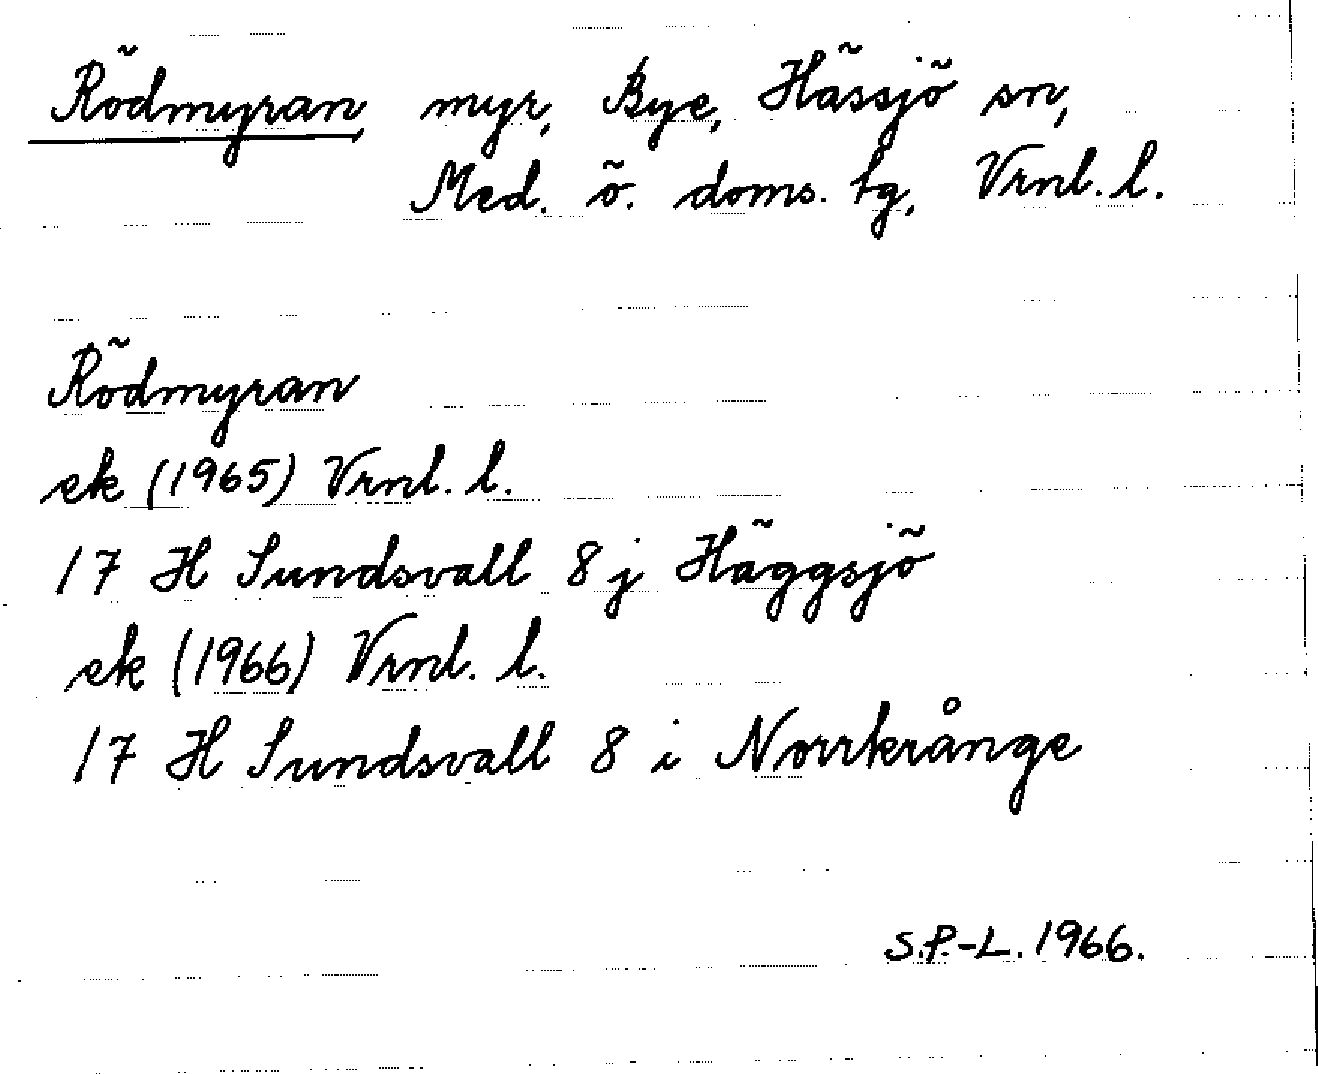 Rödmyran, myr, Bye, Hässjö sn,
Med. ö. doms. tg, Vrnl. l.
Rödmyran
ek (1965) Vrnl. l.
17 H Sundsvall 8 j Häggsjö
ek (1966) Vrnl. l.
17 H Sundsvall 8 i Norrkrånge
S.P.-L. 1966.